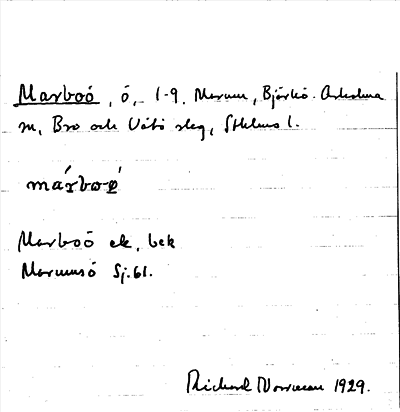 Marboö, ö, 1-9 Marum, Björkö-Arholma
sn, Bro och Vätö skg, Sthlms l.
márbo-ǿ
Marboö ek, bek
Marumsö Sj.61.
Richard Norrman 1929.